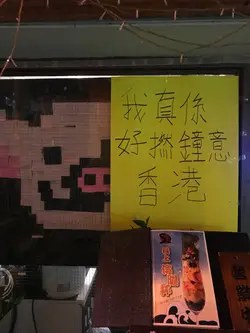 我真係
好撚鐘意
香港